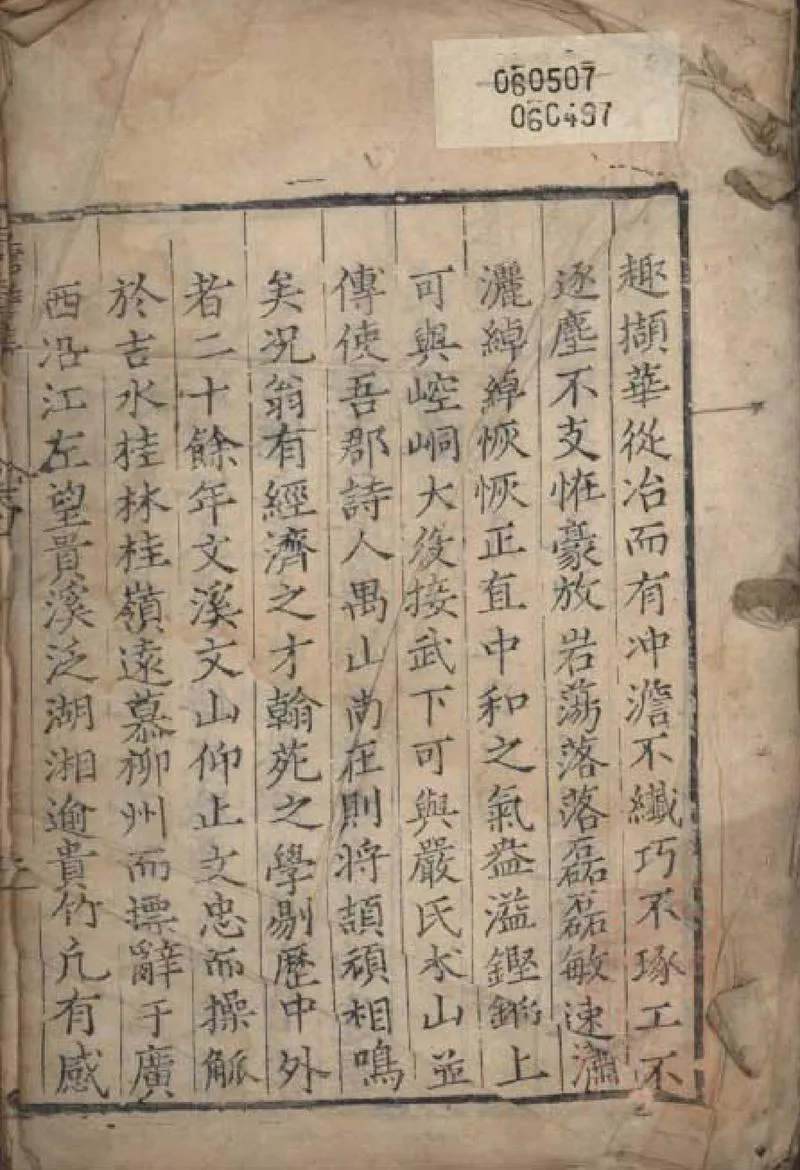 060507
060497
趣擷華從冶而有冲澹不纖巧不琢工不
逐塵不支恠豪放岩蕩落落磊磊敏速瀟
灑綽綽恢恢正直中和之氣益溢鏗鏘上
可與崆峒大復接武下可與嚴氏氷山並
傳使吾郡詩人禺山尚在則將頡頏相鳴
矣况翁有經濟之才翰苑之學剔歷中外
者二十餘年文溪文山仰止文忠而操觚
於吉水桂林桂嶺遠慕柳州而摽辭于廣
西沿江左望貴溪泛湖湘逾貴竹凢有感